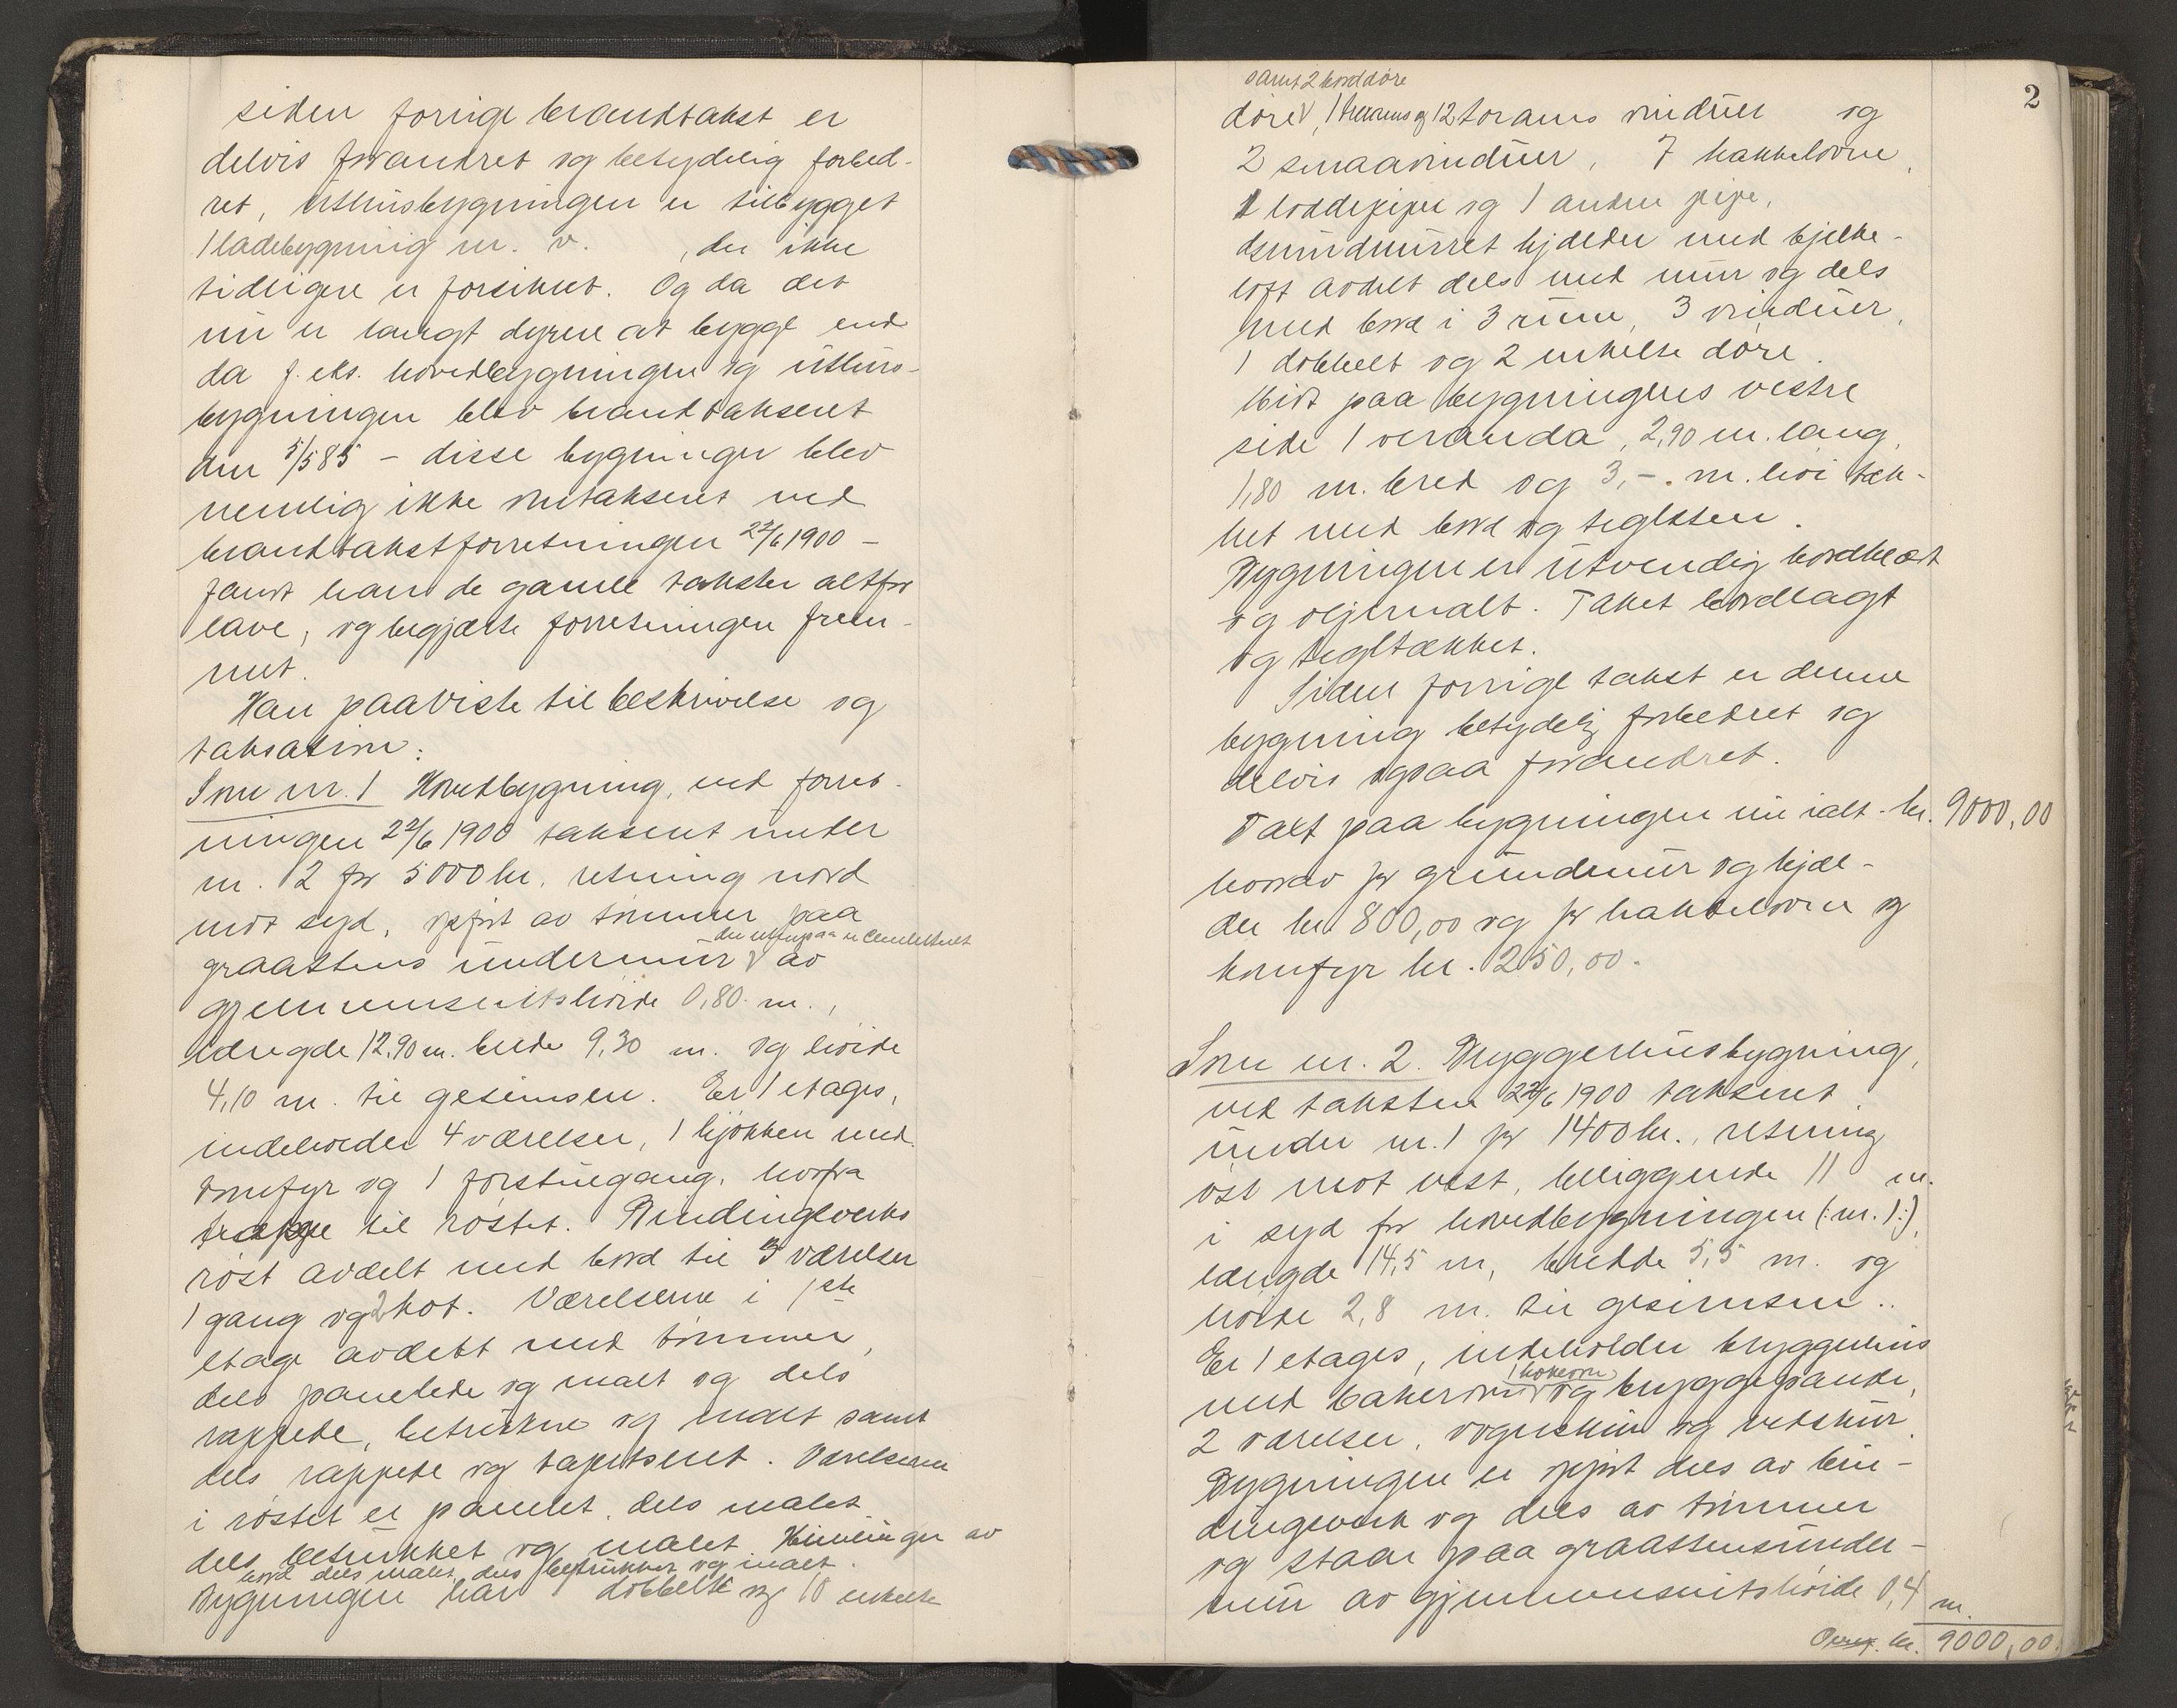 siden forrige brandtakst er
delvis forandret og betydelig forbed-
ret, uthusbygningen er tilbygget
1 ladebygning m. v. , der ikke
tidligere er forsikret. Og da det
nu er langt dyrere at bygge end
da f. eks. hovedbygningen og uthus-
bygningen blev brandtakseret
den 5/5 85 - disse bygninger blev
nemlig ikke omtakseret ved
brandtakstforretningen 22/6 1900 -
fandt han de gamle takster altfor
lave, og begjærte forretningen frem-
met.
Han paaviste til beskrivelse og
taksation:
Inu nr. 1 Hovedbygning, ved forret-
ningen 22/6 1900 takseret under
nr. 2 for 5000 kr. retning nord
mot syd, opført av tømmer paa
der utenpaa er cementeret
graastens undermur v av
gjennemsnitshøide 0,80 m.,
længde 12,90 m. bredde 9,30 m. og høide
4,10 m. til gesimsen. Er 1 etages,
indeholder 4 værelser, 1 kjøkken med
komfyr og 1 forstuegang, hvorfra
trappe til røstet. Bindingsverks
røst avdelt med bord til 3 værelser
1 gang og 2 kot. Værelserne i 1ste
etage avdelt med tømmer,
dels panelede og malt og dels
rappede, betrukne og malt samt
dels rappede og tapetseret. Værelserne
i røstet er panelet, dels malet
dels betrukket og malet. Himlinger av
bord dels malet, dels betrukket og malt.
Bygningen har 1 dobbelt og 10 enkelte
2
samt 2 borddøre
døre v, 1 trerams og 12 torams vinduer og
2 smaavinduer, 7 kakkelovne,
1 loddepipe og 1 anden pipe,
grundmuret kjælder med bjelke-
loft avdelt dels med mur og dels
med bord i 3 rum, 3 vinduer,
1 dobbelt og 2 enkelte døre.
Midt paa bygningens vestre
side 1 veranda, 2,90 m. lang,
1,80 m. bred og 3,-. m. høi tæk-
ket med bord og teglsten.
Bygningen er utvendig bordklædt
og oljemalt. Taket bordlagt
og tegltækket.
Siden forrige takst er denne
bygning betydelig forbedret og
delvis ogsaa forandret.
Takst paa bygningen nu ialt - kr. 9000,00
hvorav for grundmur og kjæl-
der kr. 800,00 og for kakkelovne og
komfyr kr. 250,00.
Inu nr. 2. Bryggerhusbygning,
ved taksten 22/6 1900 takseret
under nr. 1 for 1400 kr., retning
øst mot vest, beliggende 11 m.
i syd for hovedbygningen (: nr. 1 :),
længde 14,5 m, bredde 5,5 m. og
høide 2,8 m. til gesimsen..
Er 1 etages, indeholder bryggerhus
1 kokeovn
med bakerovn v og bryggepande,
2 værelser, vognskur og vedskur.
Bygningen er opført dels av bin-
dingsverk og dels av tømmer
og staar paa graastensunder-
mur av gjennemsnitshøide 0,4 m.
Overf. kr. 9000,00.